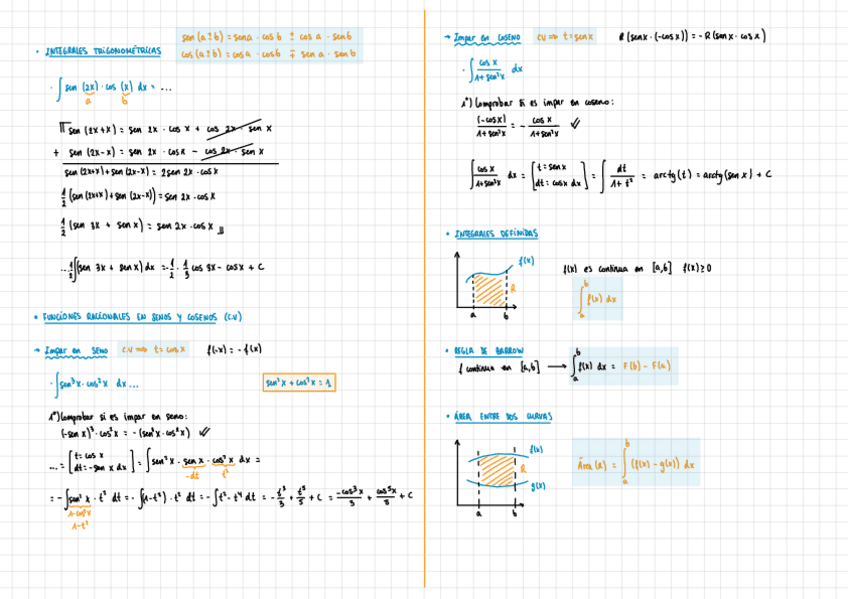 sen (a ± b) = sen a · cos b ± cos a · sen b
cos (a ± b) = cos a · cos b ∓ sen a · sen b
• INTEGRALES TRIGONOMÉTRICAS
· ∫ sen (2x) · cos (x) dx = ...
a b
sen (2x+x) = sen 2x · cos x + cos 2x · sen x
+ sen (2x-x) = sen 2x · cos x - cos 2x · sen x
sen (2x+x) + sen (2x-x) = 2 sen 2x · cos x
1/2 (sen (2x+x) + sen (2x-x)) = sen 2x · cos x
1/2 (sen 3x + sen x) = sen 2x · cos x
... 1/2 ∫(sen 3x + sen x) dx = -1/2 · 1/3 cos 3x - cos x + C
• FUNCIONES RACIONALES EN SENOS Y COSENOS (C.V)
→ Impar en SENO C.V ⟹ t = cos x f(-x) = - f(x)
· ∫ sen³x · cos²x dx ...
sen²x + cos²x = 1
1º) Comprobar si es impar en seno:
(-sen x)³ · cos²x = - (sen³x · cos²x) ✓
... = [t = cos x
dt = - sen x dx] = ∫ sen²x · sen x · cos²x dx =
-dt t²
= - ∫ sen²x · t² dt = - ∫(1-t²) · t² dt = - ∫ t² - t⁴ dt = - t³/3 + t⁵/5 + C = -cos³x/3 + cos⁵x/5 + C
1-cos²x
1-t²
→ Impar en COSENO C.V ⟹ t = sen x R (sen x · (-cos x)) = - R (sen x · cos x)
· ∫ cos x/1+sen²x dx
1º) Comprobar si es impar en coseno:
(-cos x)/1+sen²x = - cos x/1+sen²x ✓
∫ cos x/1+sen²x dx = [t = sen x
dt = cos x dx] = ∫ dt/1+t² = arctg (t) = arctg (sen x) + C
• INTEGRALES DEFINIDAS
f(x)
R
a b
f(x) es continua en [a,b] f(x) ≥ 0
∫ₐᵇ f(x) dx
• REGLA DE BARROW
f continua en [a,b] ⟶ ∫ₐᵇ f(x) dx = F(b) - F(a)
• ÁREA ENTRE DOS CURVAS
f(x)
R
g(x)
a b
Área (R) = ∫ₐᵇ (f(x) - g(x)) dx